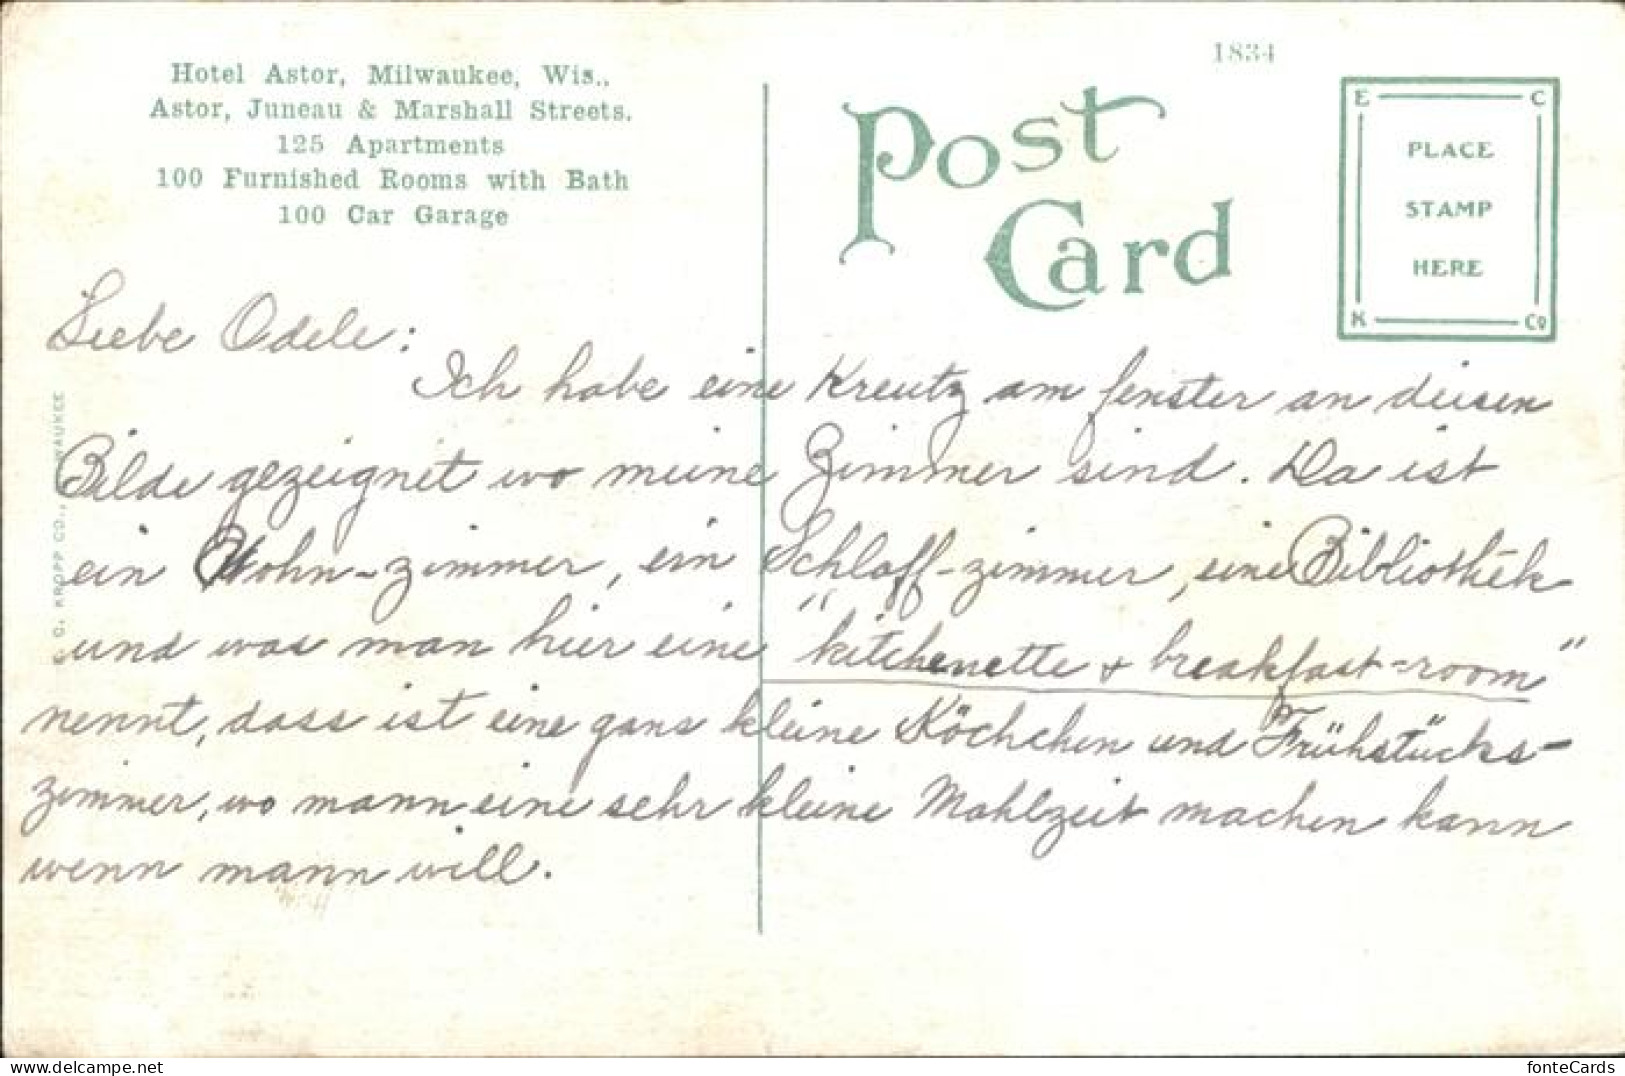 1834
Hotel Astor, Milwaukee, Wis.,
Astor, Juneau & Marshall Streets.
125 Apartments
100 Furnished Rooms with Bath
100 Car Garage
Post
Card
E C
PLACE
STAMP
HERE
K Co
Liebe Odele:
Ich habe eine Kreutz am fenster an diesen
Bilde gezeignet wo meine Zimmer sind. Da ist
ein Wohn-zimmer, ein Schlaff-zimmer, eine Bibliothek
und was man hier eine "kitchenette + breakfast-room"
nennt, dass ist eine gans kleine Köchchen und Frühstücks-
zimmer, wo mann eine sehr kleine Mahlzeit machen kann
wenn mann will.
C. KROPP CO., WAUKEE
www.delcampe.net
fonteCards